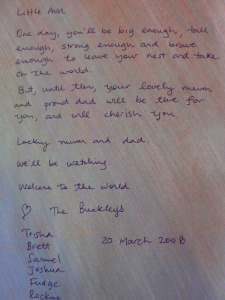 Little
One day, you'll be big enough, tall
enough, strong enough and brave
enough to leave your nest and take
on the world.
But, until then, your lovely mum
and proud dad will be there for
you, and will cherish you.
Lucky mum and dad.
We'll be watching.
Welcome to the world
♡ The Buckleys
Trisha
Brett
20 March 2008
Samuel
Joshua
Fudge